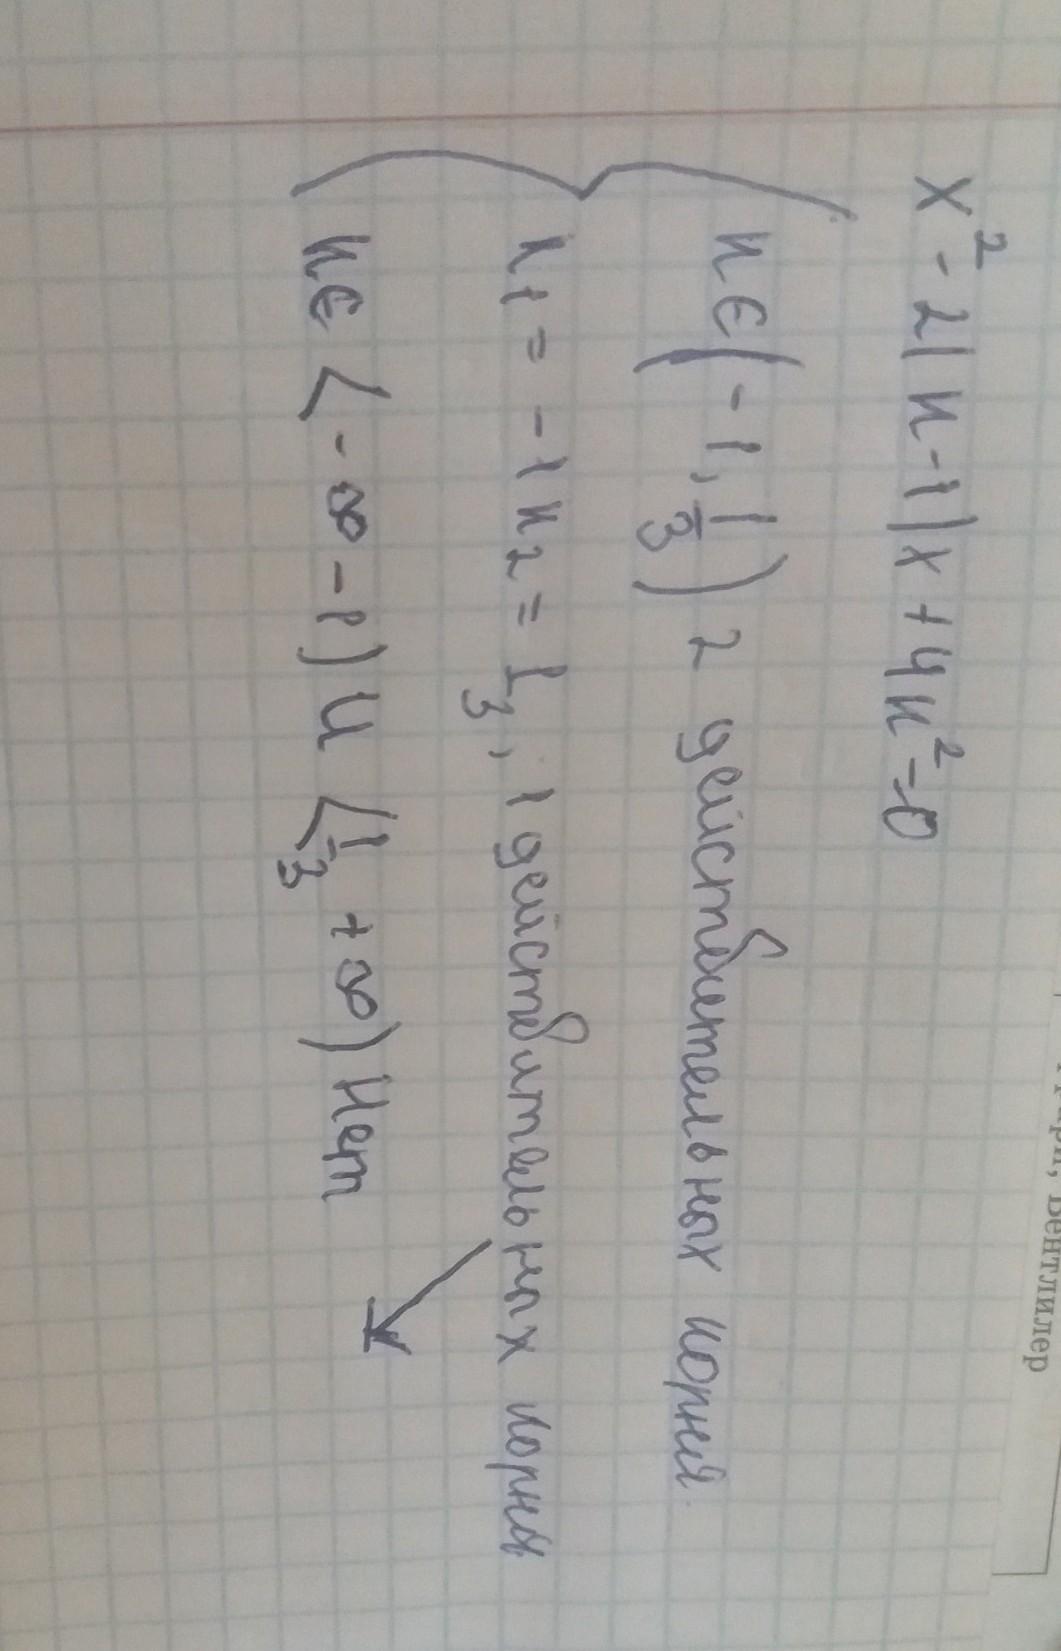 x² - 2|к-1|x + 4к² = 0
к ∈ (-1, 1/3) 2 действетельных корня.
к₁ = -1 к₂ = 1/3, 1 действительных корня
к ∈ (-∞ -1) U (1/3 +∞) Нет
Вентлилер